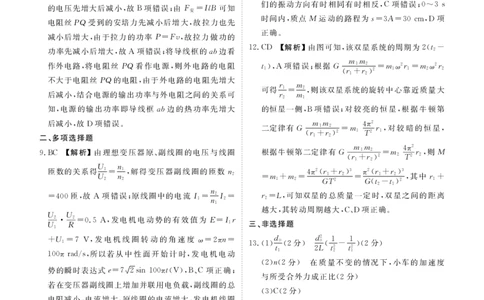 的电压先增大后减小,故B项错误;由 F安=IlB可知
电阻丝PQ受到的安培力先减小后增大,故拉力也先
减小后增大,由于拉力的功率P=Fv,故拉力做功的
功率先减小后增大,故A项错误;将导线框的ab边看
作外电路,将电阻丝PQ看作电源,则外电路的电阻
不大于电阻丝PQ的电阻,由于外电路的电阻先增大
后减小,结合电源的输出功率与外电阻之间的关系可
知,电源的输出功率即导线框ab边的热功率先增大
后减小,故D项错误。
二、多项选择题
9.BC 【解析】由理想变压器原、副线圈的电压与线圈
匝数的关系得U₂/U₁=n₂/n₁,解得变压器副线圈的匝数n₂
=400匝,故A项错误;原线圈中的电流I₁=n₂/n₁ I₂=
U₂/U₁·U₂/R=0.5 A,发电机电动势的有效值为E=I₁r
+U₁=7 V,发电机线圈转动的角速度 ω=2πn=
100π rad/s,所以若从中性面开始计时,发电机电动
势的瞬时表达式e=7√2sin 100πt(V),B、C项正确;
若在变压器副线圈上增加并联用电负载,副线圈的总
们的振动方向有时相同有时相反,C项错误;0~3 s
时间内,质点M运动的路程为s=3A=30 cm,D项
正确。
12.CD 【解析】由图可知,该双星系统的周期为2(t₂-
t₁),A项错误;根据G m₁m₂/(r₁+r₂)²=m₁ω²r₁=m₂ω²r₂
可得 r₁/r₂=m₂/m₁,则该双星系统的旋转中心靠近质量大
的恒星一侧,B项错误;对较亮的恒星,根据牛顿第
二定律有G m₁m₂/(r₁+r₂)²=m₁ 4π²/T² r₁,对较暗的恒星,
根据牛顿第二定律有G m₁m₂/(r₁+r₂)²=m₂ 4π²/T² r₂,则M
=m₁+m₂=4π²(r₁+r₂)³/GT²=π²(r₁+r₂)³/G(t₂-t₁)²,其中r₁+
r₂=L,可知双星的总质量一定时,双星之间的距离
越大,其转动周期越大,C、D项正确。
三、非选择题
13.(1)d/t₁(2分) d²/2L(1/t₂²-1/t₁²)(2分)
(2)n(2分) 在质量不变的情况下,小车的加速度
与所受合外力成正比(2分)
(3)C(2分)